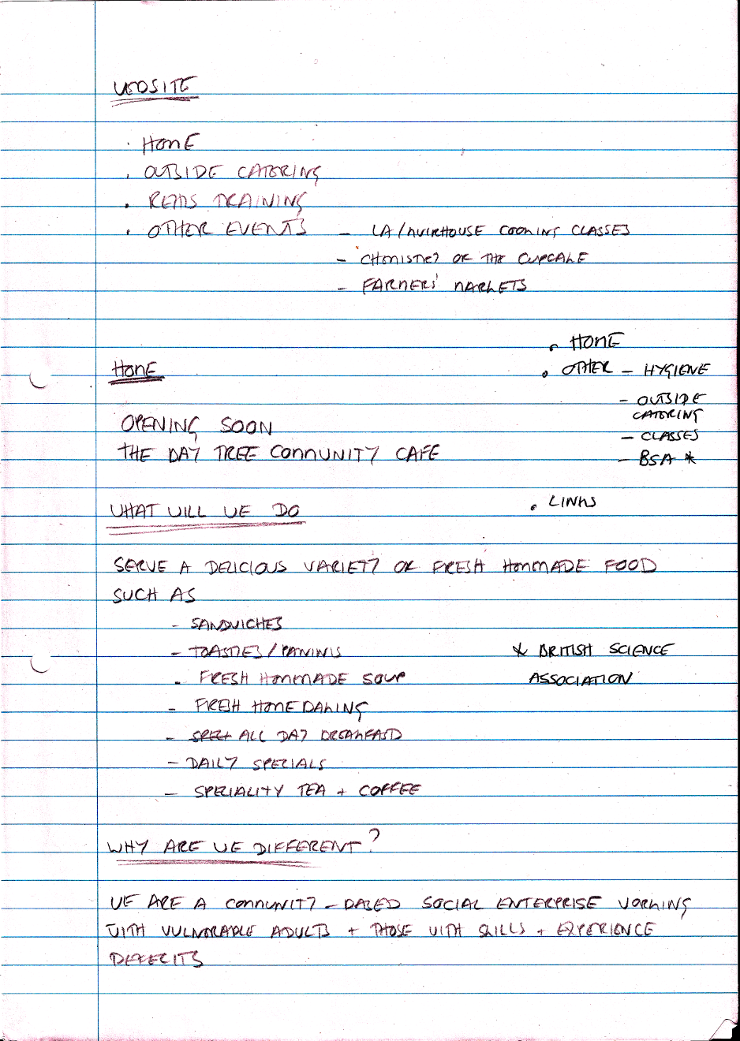 WEBSITE
· HOME
· OUTSIDE CATERING
· REHIS TRAINING
· OTHER EVENTS - LA/MUIRHOUSE COOKING CLASSES
- CHEMISTRY OF THE CUPCAKE
- FARMERS' MARKETS
HOME
OPENING SOON
THE BAY TREE COMMUNITY CAFE
· HOME
· OTHER - HYGIENE
- OUTSIDE
CATERING
- CLASSES
- BSA *
· LINKS
WHAT WILL WE DO
SERVE A DELICIOUS VARIETY OF FRESH HOMMADE FOOD
SUCH AS
- SANDWICHES
- TOASTIES/PANINIS
- FRESH HOMMADE SOUP
- FRESH HOME BAKING
- ALL DAY BREAKFAST
- DAILY SPECIALS
- SPECIALITY TEA + COFFEE
* BRITISH SCIENCE
ASSOCIATION
WHY ARE WE DIFFERENT?
WE ARE A COMMUNITY-BASED SOCIAL ENTERPRISE WORKING
WITH VULNERABLE ADULTS + THOSE WITH SKILLS + EXPERIENCE
DEFECITS